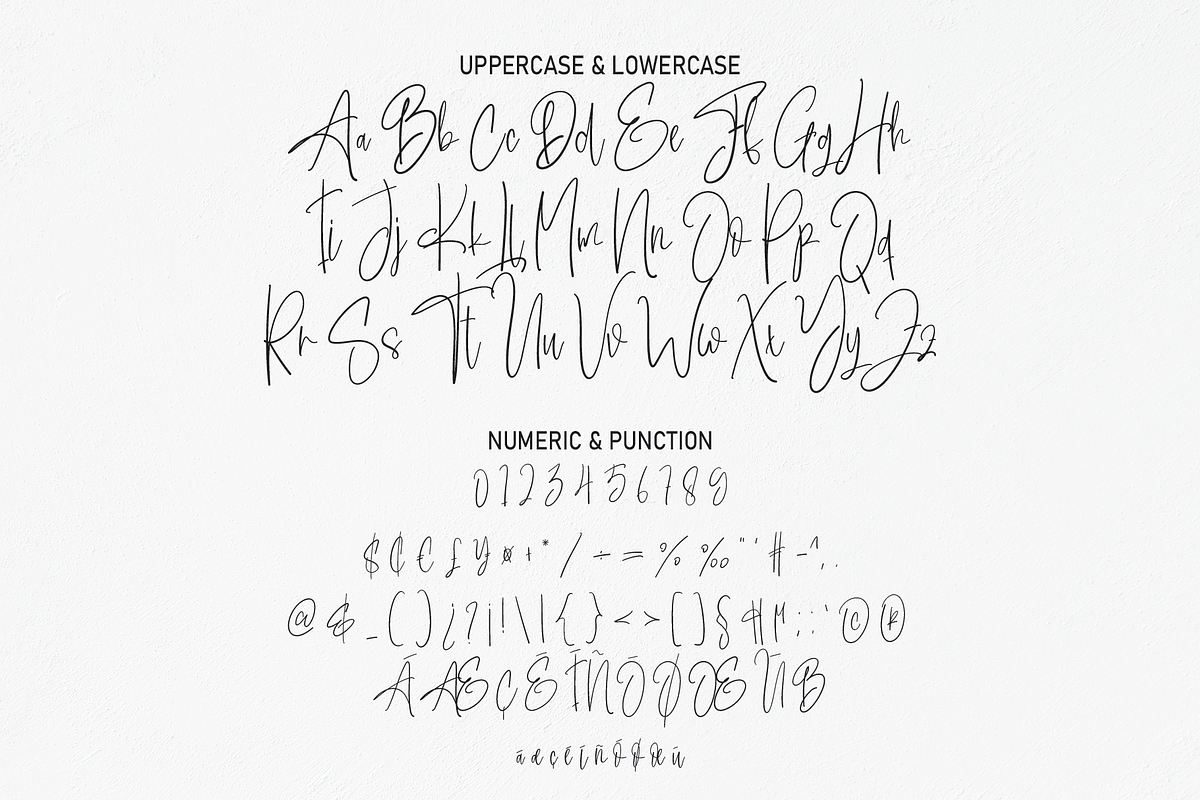 UPPERCASE & LOWERCASE
Aa Bb Cc Dd Ee Ff Gg Hh
Ii Jj Kk Ll Mm Nn Oo Pp Qq
Rr Ss Tt Uu Vv Ww Xx Yy Zz
NUMERIC & PUNCTION
0 1 2 3 4 5 6 7 8 9
$ ₵ € £ ¥ ¤ + * / ÷ = % ‰ " ' # - ^ , .
@ & _ ( ) ¿ ? ¡ ! \ | { } < > [ ] § : ; ' © ®
Ā Æ Ç Ē Ī Ñ Ō Ø Œ Ū B
ā æ ç ē ī ñ ō ø œ ū